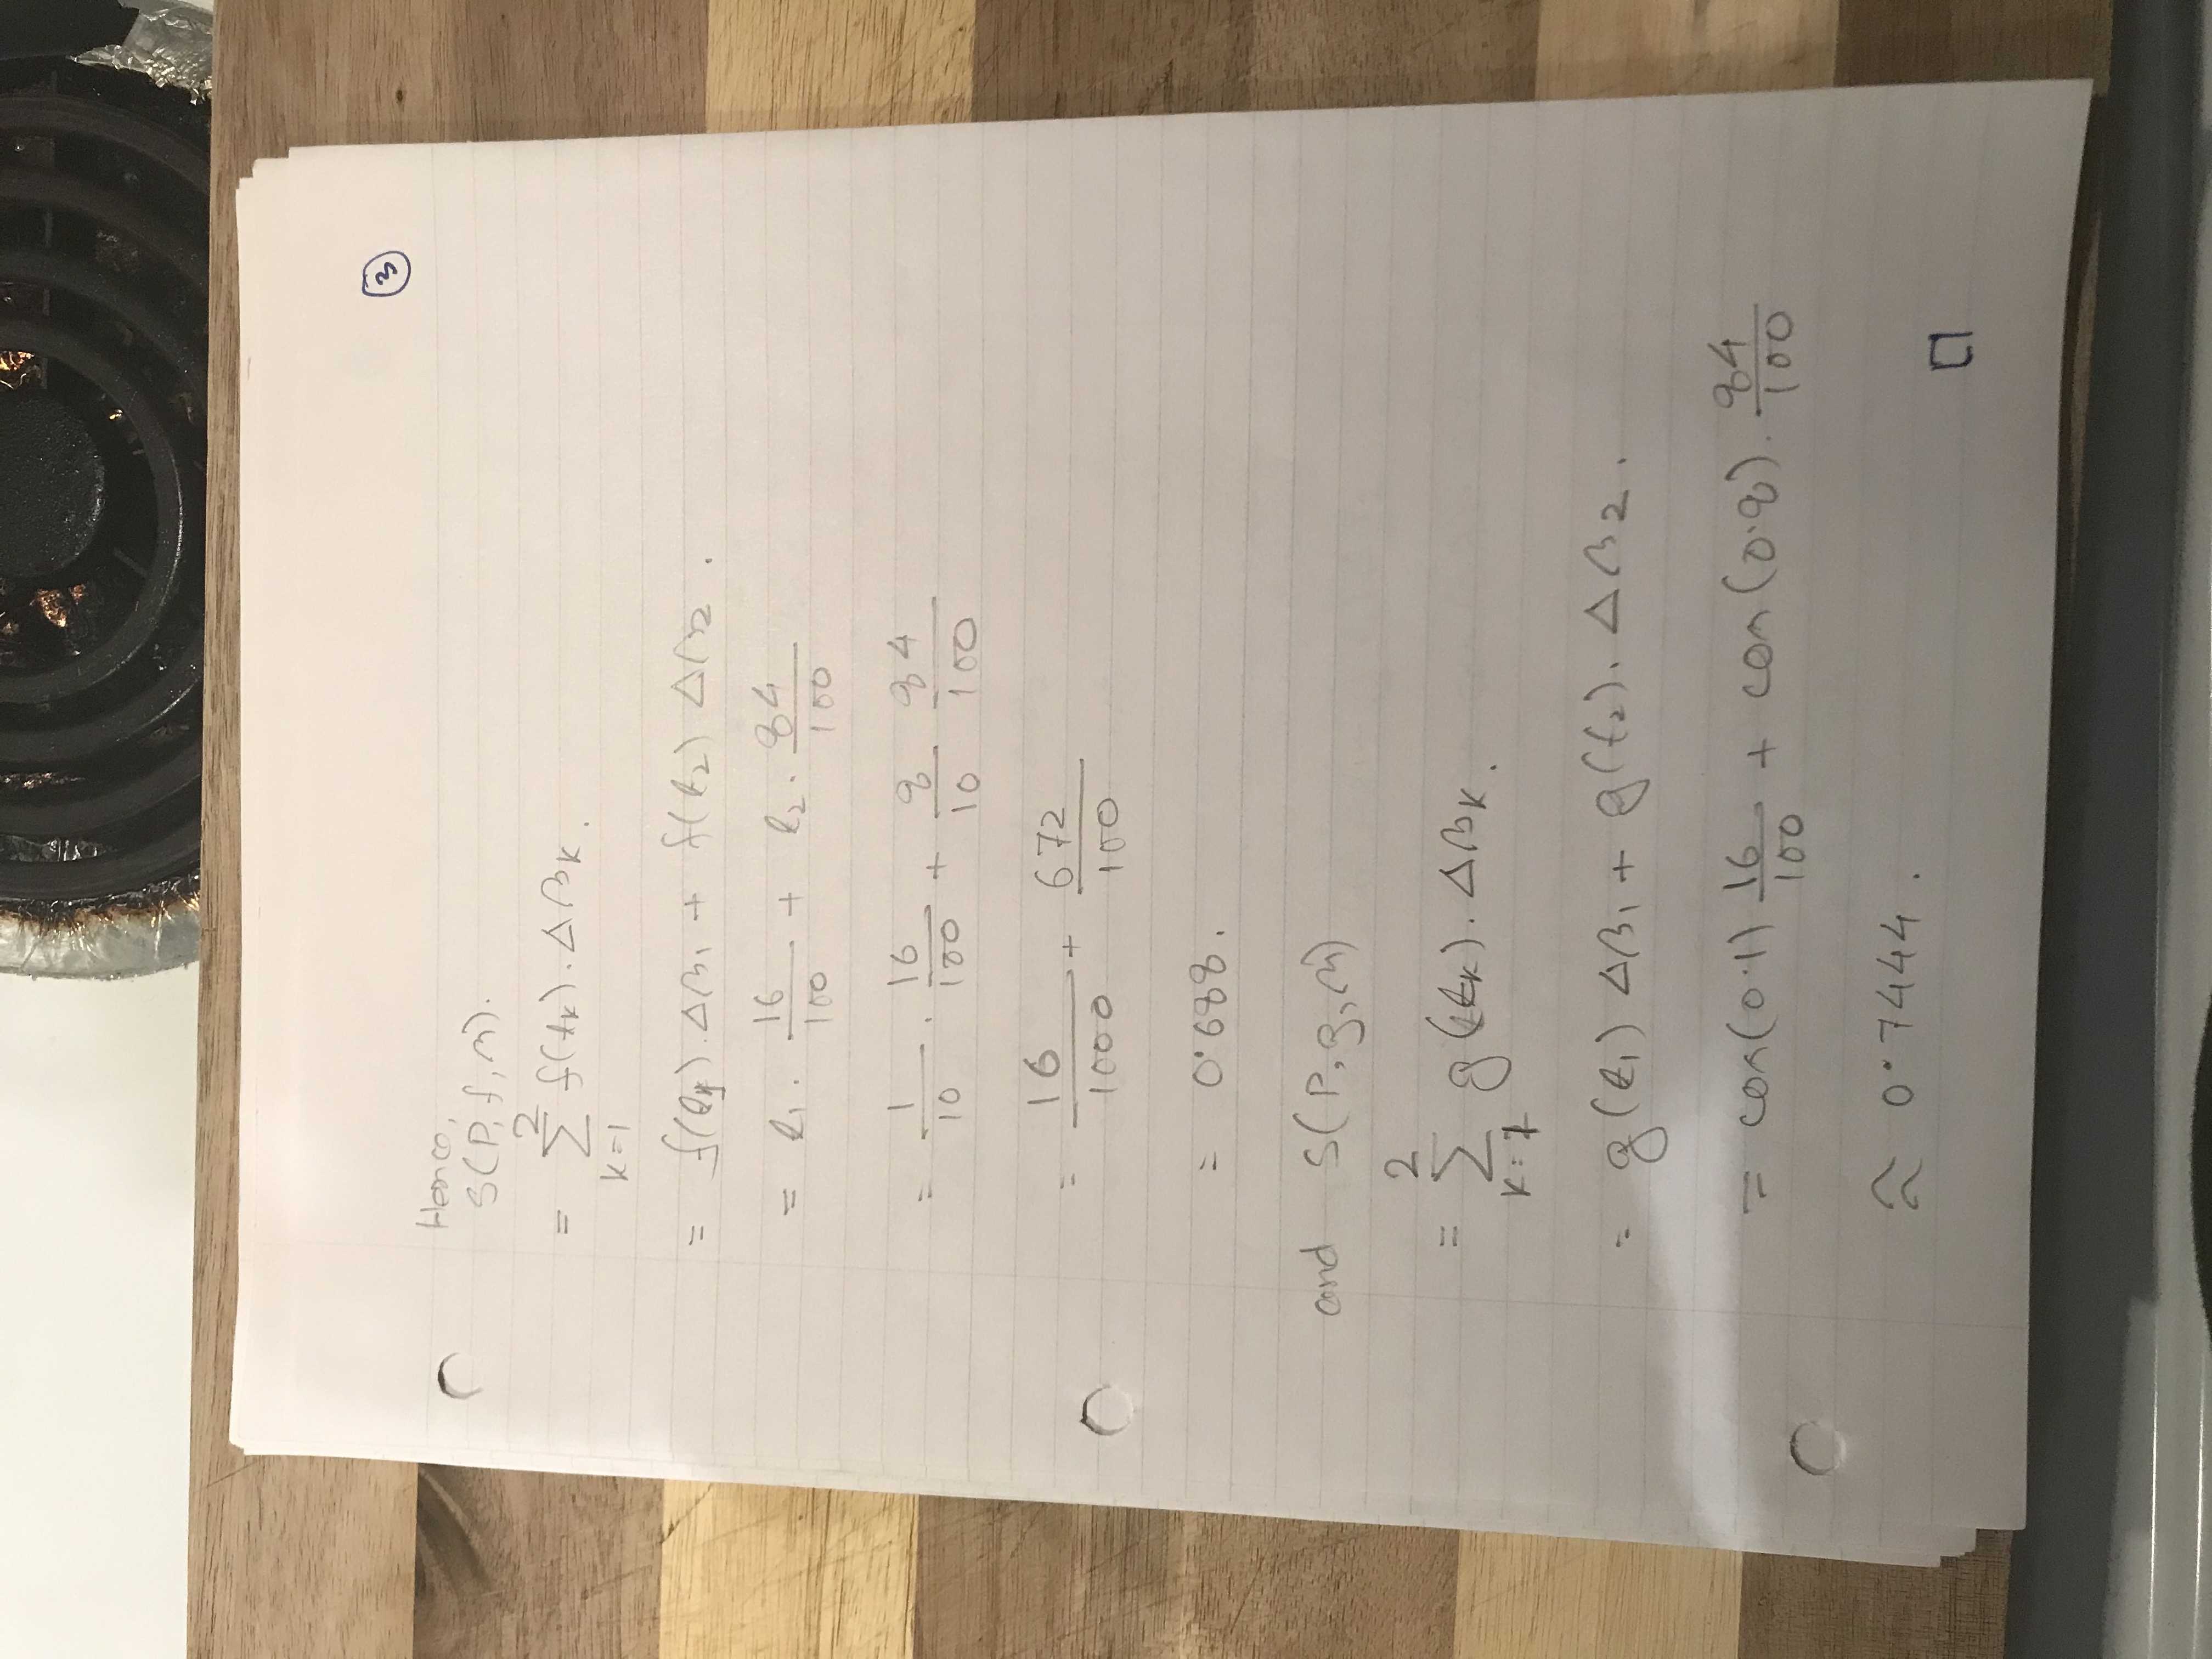 3
Hence,
S(P, f, β).
= ∑_{k=1}^{2} f(t_k) . Δβ_k .
= f(t_1) . Δβ_1 + f(t_2) Δβ_2 .
= t_1 . 16/100 + t_2 . 84/100
= 1/10 . 16/100 + 8/10 84/100
= 16/1000 + 672/100
= 0.688 .
and S(P, g, β)
= ∑_{k=1}^{2} g(t_k) . Δβ_k .
= g(t_1) Δβ_1 + g(t_2) . Δβ_2 .
= cos(0.1) 16/100 + cos(0.8) . 84/100
≈ 0.7444 .
□